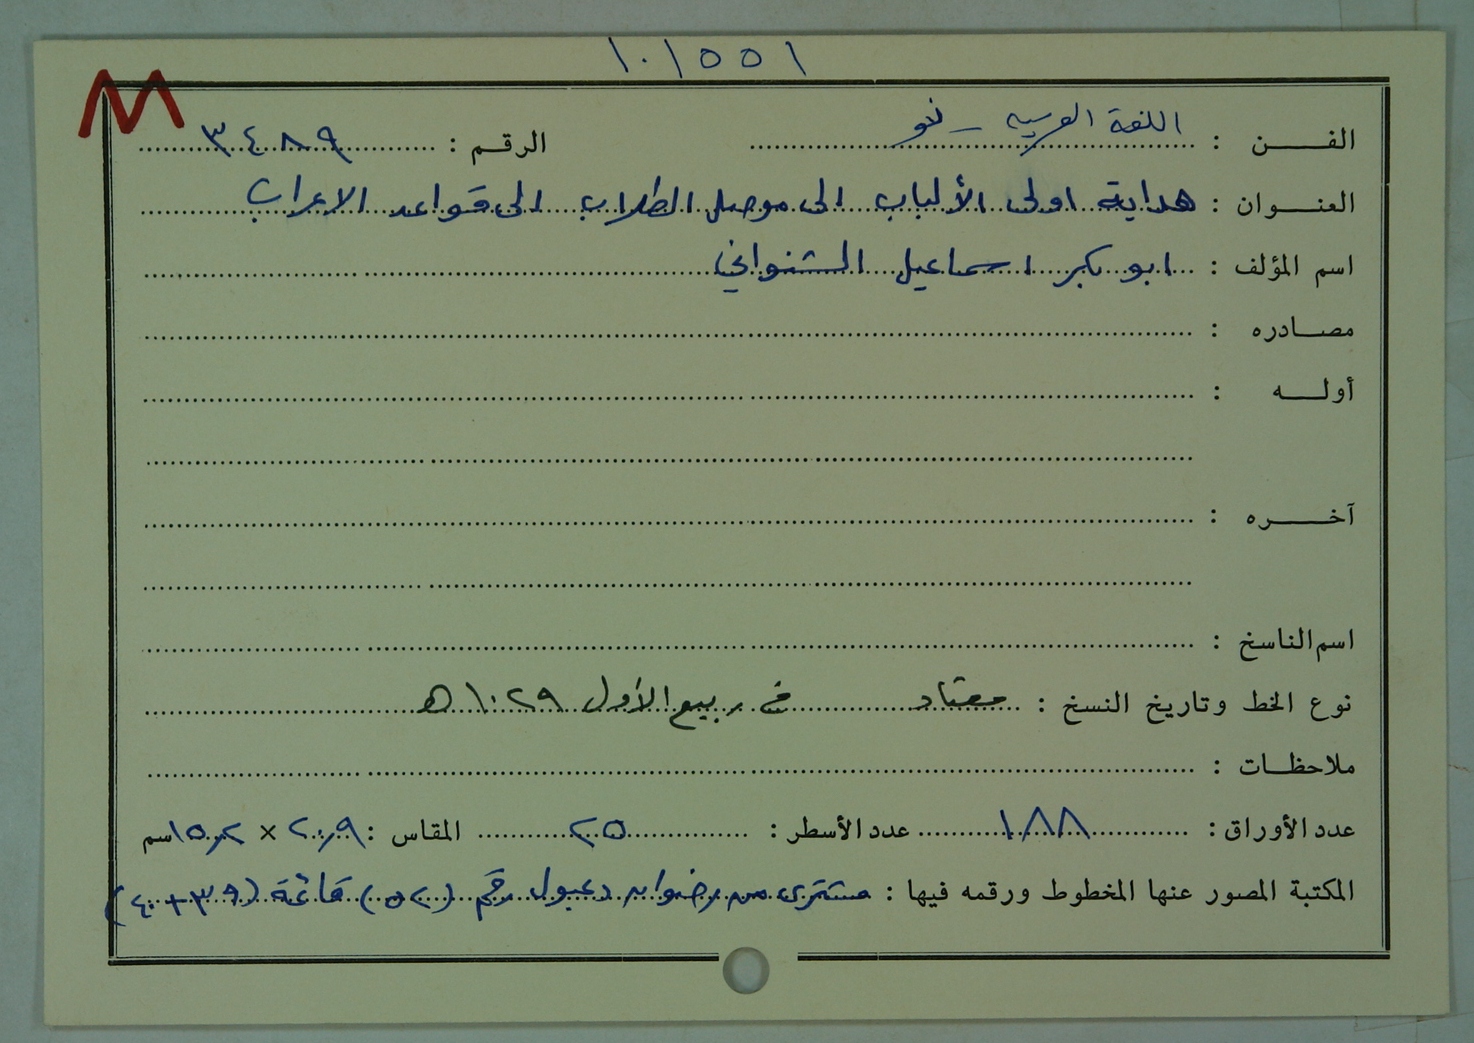 ١٠١٥٥١
M
الفن : اللغة العربيه - نحو الرقم : ٣٤٨٩
العنوان : هداية اولى الألباب الى موصل الطلاب الى قواعد الاعراب
اسم المؤلف : ابو بكر اسماعيل الشنواني
مصادره :
أوله :
آخره :
اسم الناسخ :
نوع الخط وتاريخ النسخ : معتاد في ربيع الأول ١٠٢٩ هـ
ملاحظات :
عدد الأوراق : ١٨٨ عدد الأسطر : ٢٥ المقاس : ٢٠,٩ × ١٥,٢ سم
المكتبة المصور عنها المخطوط ورقمه فيها : مشترى من رضوان دعبول رقم (٥٢) قائمة (٣٩+٤٠)